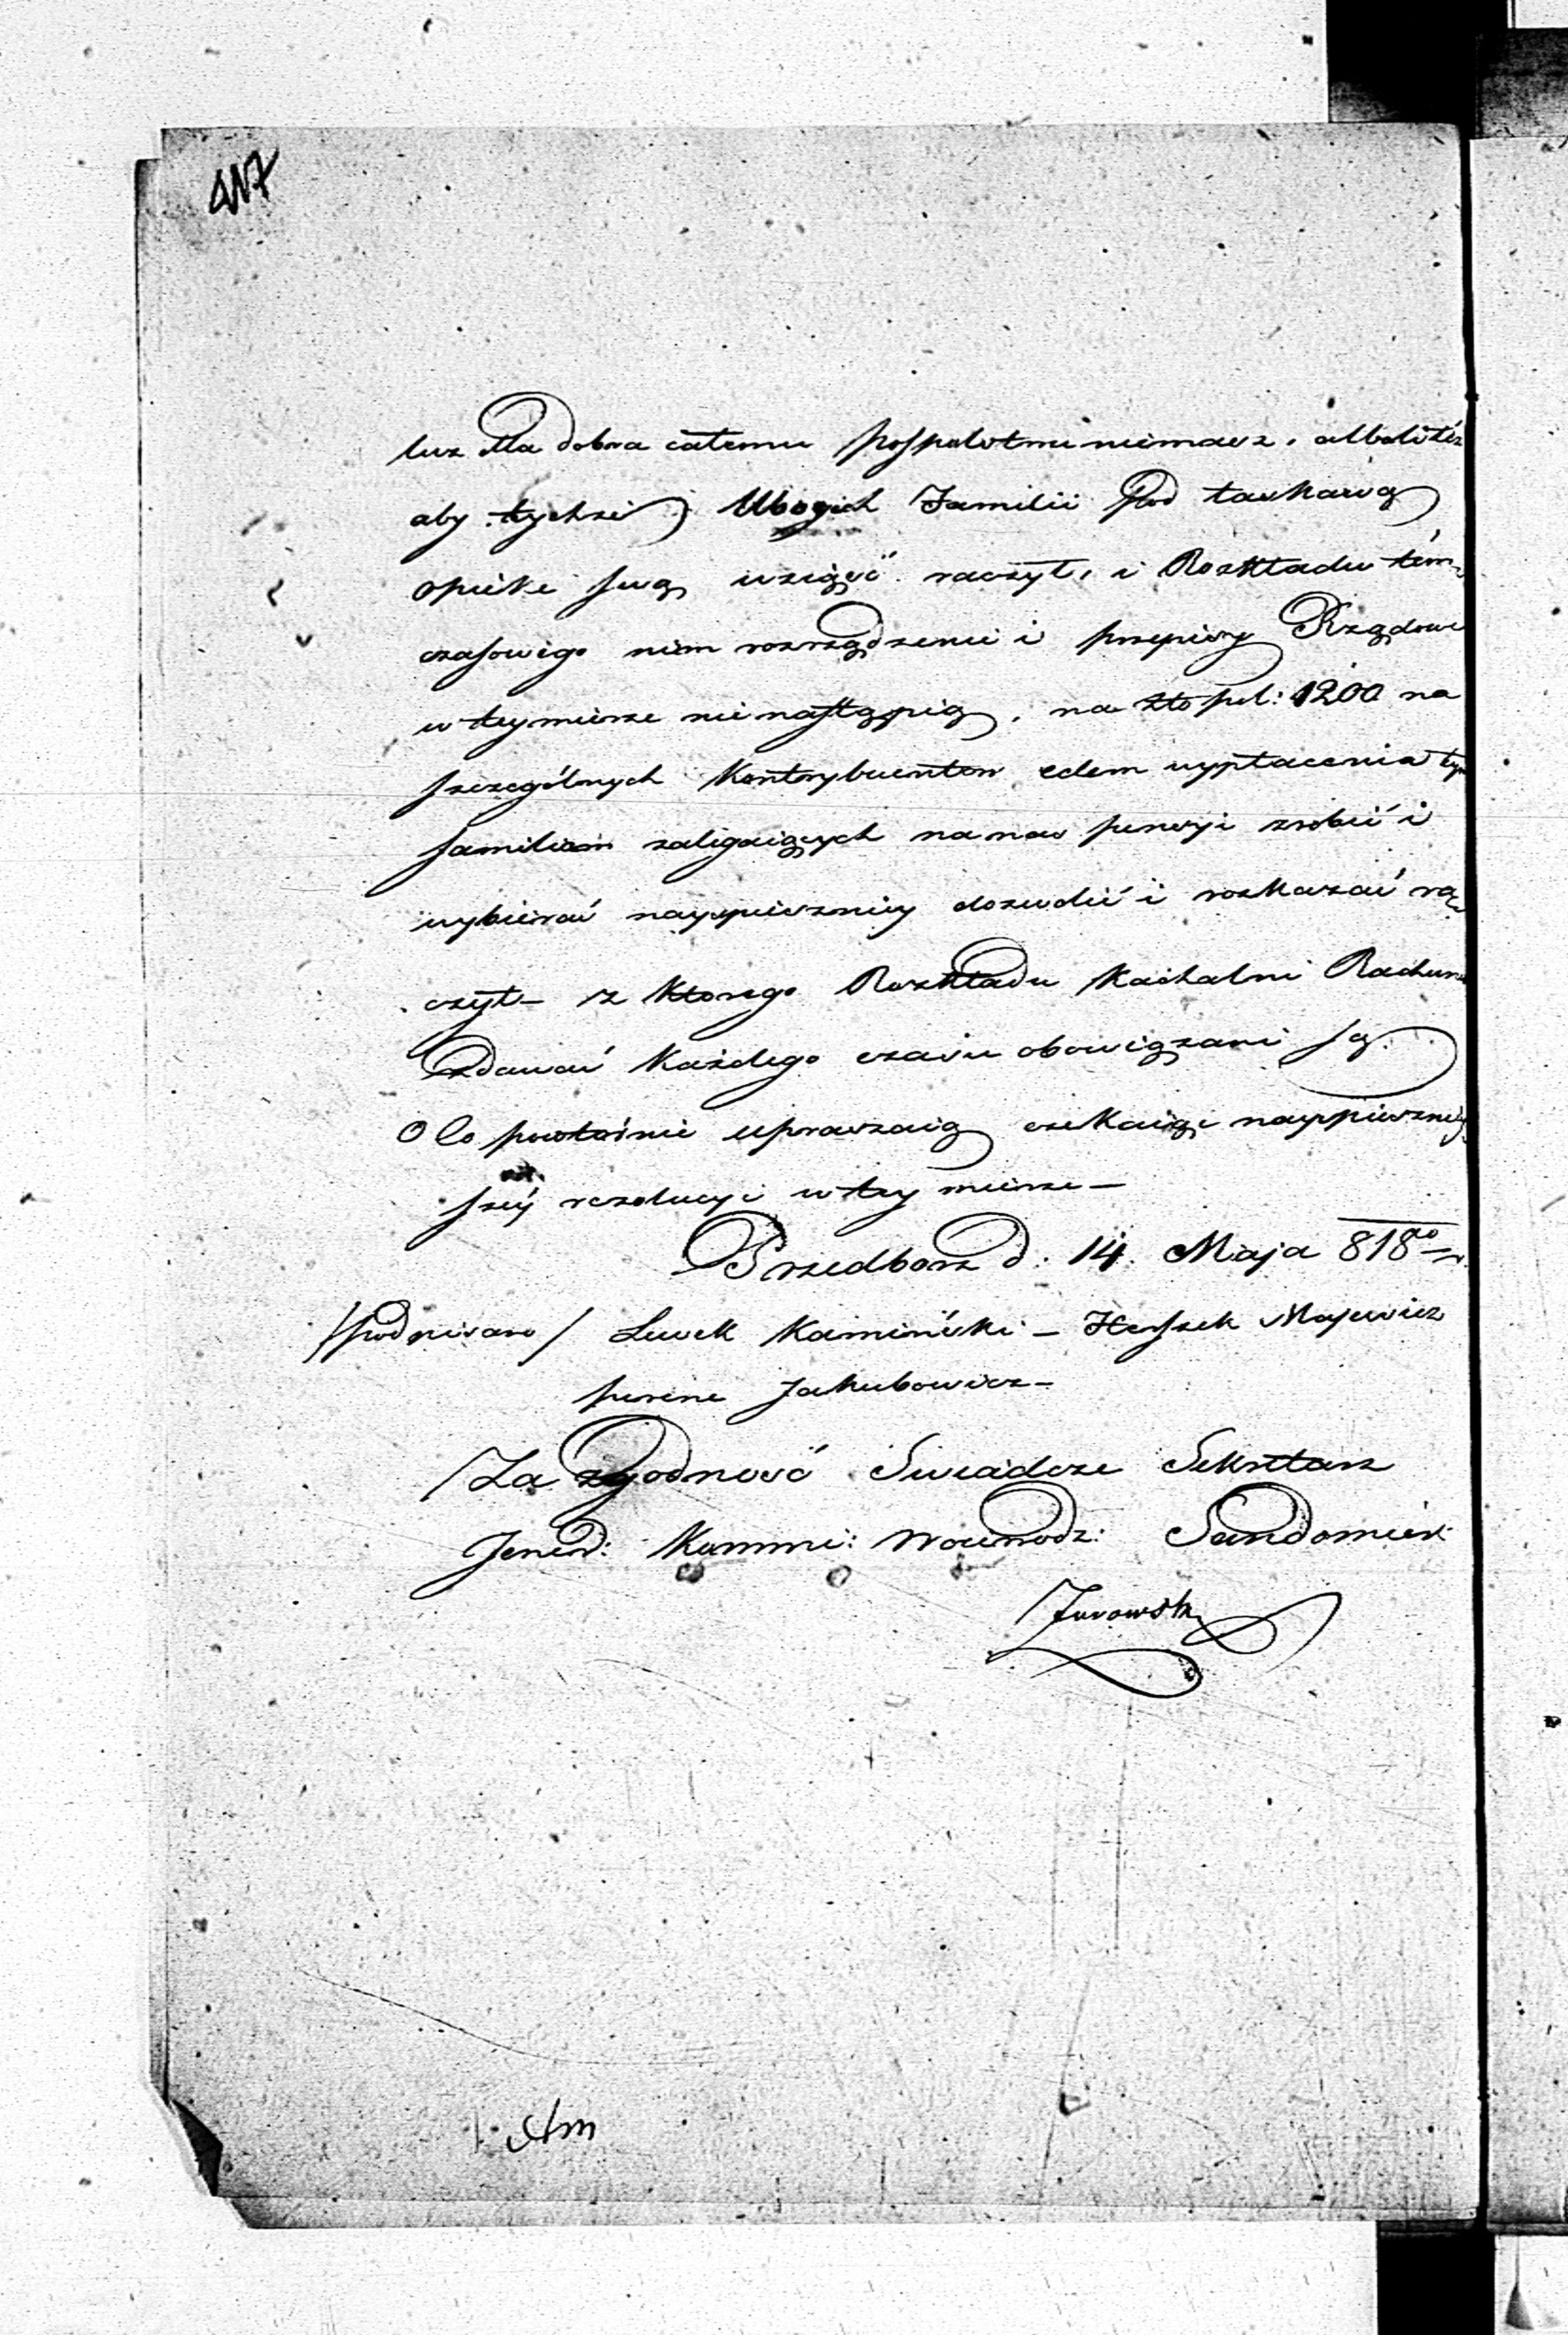 417
lecz dla dobra całemu pospolstwu niemasz, alboliteż
aby tychże Ubogich Familii Pod łaskawą
opiekę swą wziąść raczył, i Rozkładu tém-
czasowigo nim rozrządzenie i przepisy Rządowe
w tey mierze nie nastąpią, na złt: pol: 1200 na
szczególnych Kontrybuentow celem wypłacenia tym
familiom zaligaiących na nas pensyi zrobić i
wybierać nayspieszniey dozwolić i rozkazać ra-
czył – z Ktorego Rozkładu Kachalni Rachunek
Zdawać Każdego czasu obowiązani są.
O co powtórnie upraszaią czekaiąc nayspieszniey-
széy rezolucyi w tey mierze –
Przedborz d: 14. Maja 818go r.
/podpisano/ Lewek Kamiński – Herszek Majewicz
Jakubowicz –
Za zgodność Swiadcze Sekretarz
Jener: Kommi: Woiewodz: Sandomiér: